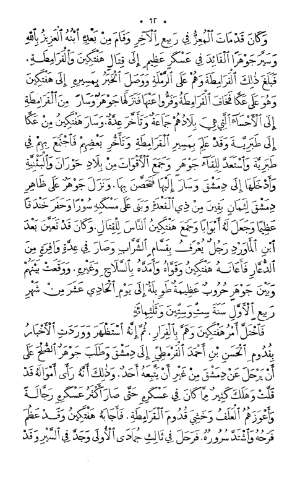 • ٦٢ •
وَكَانَ قَدْ مَاتَ الْمُعِزُّ فِي رَبِيعِ الْآخِرِ وَقَامَ مِنْ بَعْدِهِ ابْنُهُ الْعَزِيزُ بِاللهِ
وَسَيَّرَ جَوْهَرًا الْقَائِدَ فِي عَسْكَرٍ عَظِيمٍ إِلَى قِتَالِ هَفْتَكِينَ وَالْقَرَامِطَةِ.
فَبَلَغَ ذٰلِكَ الْقَرَامِطَةَ وَهُمْ عَلَى الرَّمْلَةِ وَوَصَلَ الْخَبَرُ بِمَسِيرِهِ إِلَى هَفْتَكِينَ
وَهُوَ عَلَى عَكَّا فَخَافَ الْقَرَامِطَةُ وَفَرُّوا عَنْهَا فَنَزَلَهَا جَوْهَرٌ وَسَارَ مِنَ الْقَرَامِطَةِ
إِلَى الْأَحْسَاءِ الَّتِي هِيَ بِلَادُهُمْ جَمَاعَةٌ وَتَأَخَّرَ عِدَّةٌ. وَسَارَ هَفْتَكِينُ مِنْ عَكَّا
إِلَى طَبَرِيَّةَ وَقَدْ عَلِمَ بِمَسِيرِ الْقَرَامِطَةِ وَتَأَخُّرِ بَعْضِهِمْ فَاجْتَمَعَ بِهِمْ فِي
طَبَرِيَّةَ وَاسْتَعَدَّ لِلِقَاءِ جَوْهَرٍ وَجَمَعَ الْأَقْوَاتَ مِنْ بِلَادِ حَوْرَانَ وَالْبَثَنِيَّةِ
وَأَدْخَلَهَا إِلَى دِمَشْقَ وَسَارَ إِلَيْهَا فَتَحَصَّنَ بِهَا. وَنَزَلَ جَوْهَرٌ عَلَى ظَاهِرِ
دِمَشْقَ لِثَمَانٍ بَقِينَ مِنْ ذِي الْقَعْدَةِ وَبَنَى عَلَى مَسْكَنِهِ سُورًا وَحَفَرَ خَنْدَقًا
عَظِيمًا وَجَعَلَ لَهُ أَبْوَابًا وَجَمَعَ هَفْتَكِينُ النَّاسَ لِلْقِتَالِ. وَكَانَ قَدْ تَعَيَّنَ بَعْدَ
ابْنِ الْمَاوَرْدِ رَجُلٌ يُعْرَفُ بِقَسَّامِ التَّرَّابِ وَصَارَ فِي عِدَّةٍ وَافِرَةٍ مِنَ
الدُّعَّارِ فَأَعَانَهُ هَفْتَكِينُ وَقَوَّاهُ وَأَمَدَّهُ بِالسِّلَاحِ وَغَيْرِهِ. وَوَقَعَتْ بَيْنَهُمْ
وَبَيْنَ جَوْهَرٍ حُرُوبٌ عَظِيمَةٌ طَوِيلَةٌ إِلَى يَوْمِ الْحَادِي عَشَرَ مِنْ شَهْرِ
رَبِيعٍ الْأَوَّلِ سَنَةَ سِتٍّ وَسِتِّينَ وَثَلَاثِمِائَةٍ
فَاخْتَلَّ أَمْرُ هَفْتَكِينَ وَهَمَّ بِالْفِرَارِ. ثُمَّ إِنَّهُ اسْتَظْهَرَ وَوَرَدَتِ الْأَخْبَارُ
بِقُدُومِ الْحَسَنِ بْنِ أَحْمَدَ الْقَرْمَطِيِّ إِلَى دِمَشْقَ وَطَلَبَ جَوْهَرٌ الصُّلْحَ عَلَى
أَنْ يَرْحَلَ عَنْ دِمَشْقَ مِنْ غَيْرِ أَنْ يَتْبَعَهُ أَحَدٌ. وَذٰلِكَ أَنَّهُ رَأَى أَمْوَالَهُ قَدْ
قَلَّتْ وَهَلَكَ كَثِيرٌ مِمَّا كَانَ فِي عَسْكَرِهِ حَتَّى صَارَ أَكْثَرُ عَسْكَرِهِ رَجَّالَةً
وَأَعْوَزَهُمُ الْعَلَفُ وَخَشِيَ قُدُومَ الْقَرَامِطَةِ. فَأَجَابَهُ هَفْتَكِينُ وَقَدْ عَظُمَ
فَرَحُهُ وَاشْتَدَّ سُرُورُهُ. فَرَحَلَ فِي ثَالِثِ جُمَادَى الْأُولَى وَجَدَّ فِي السَّيْرِ وَقَدْ